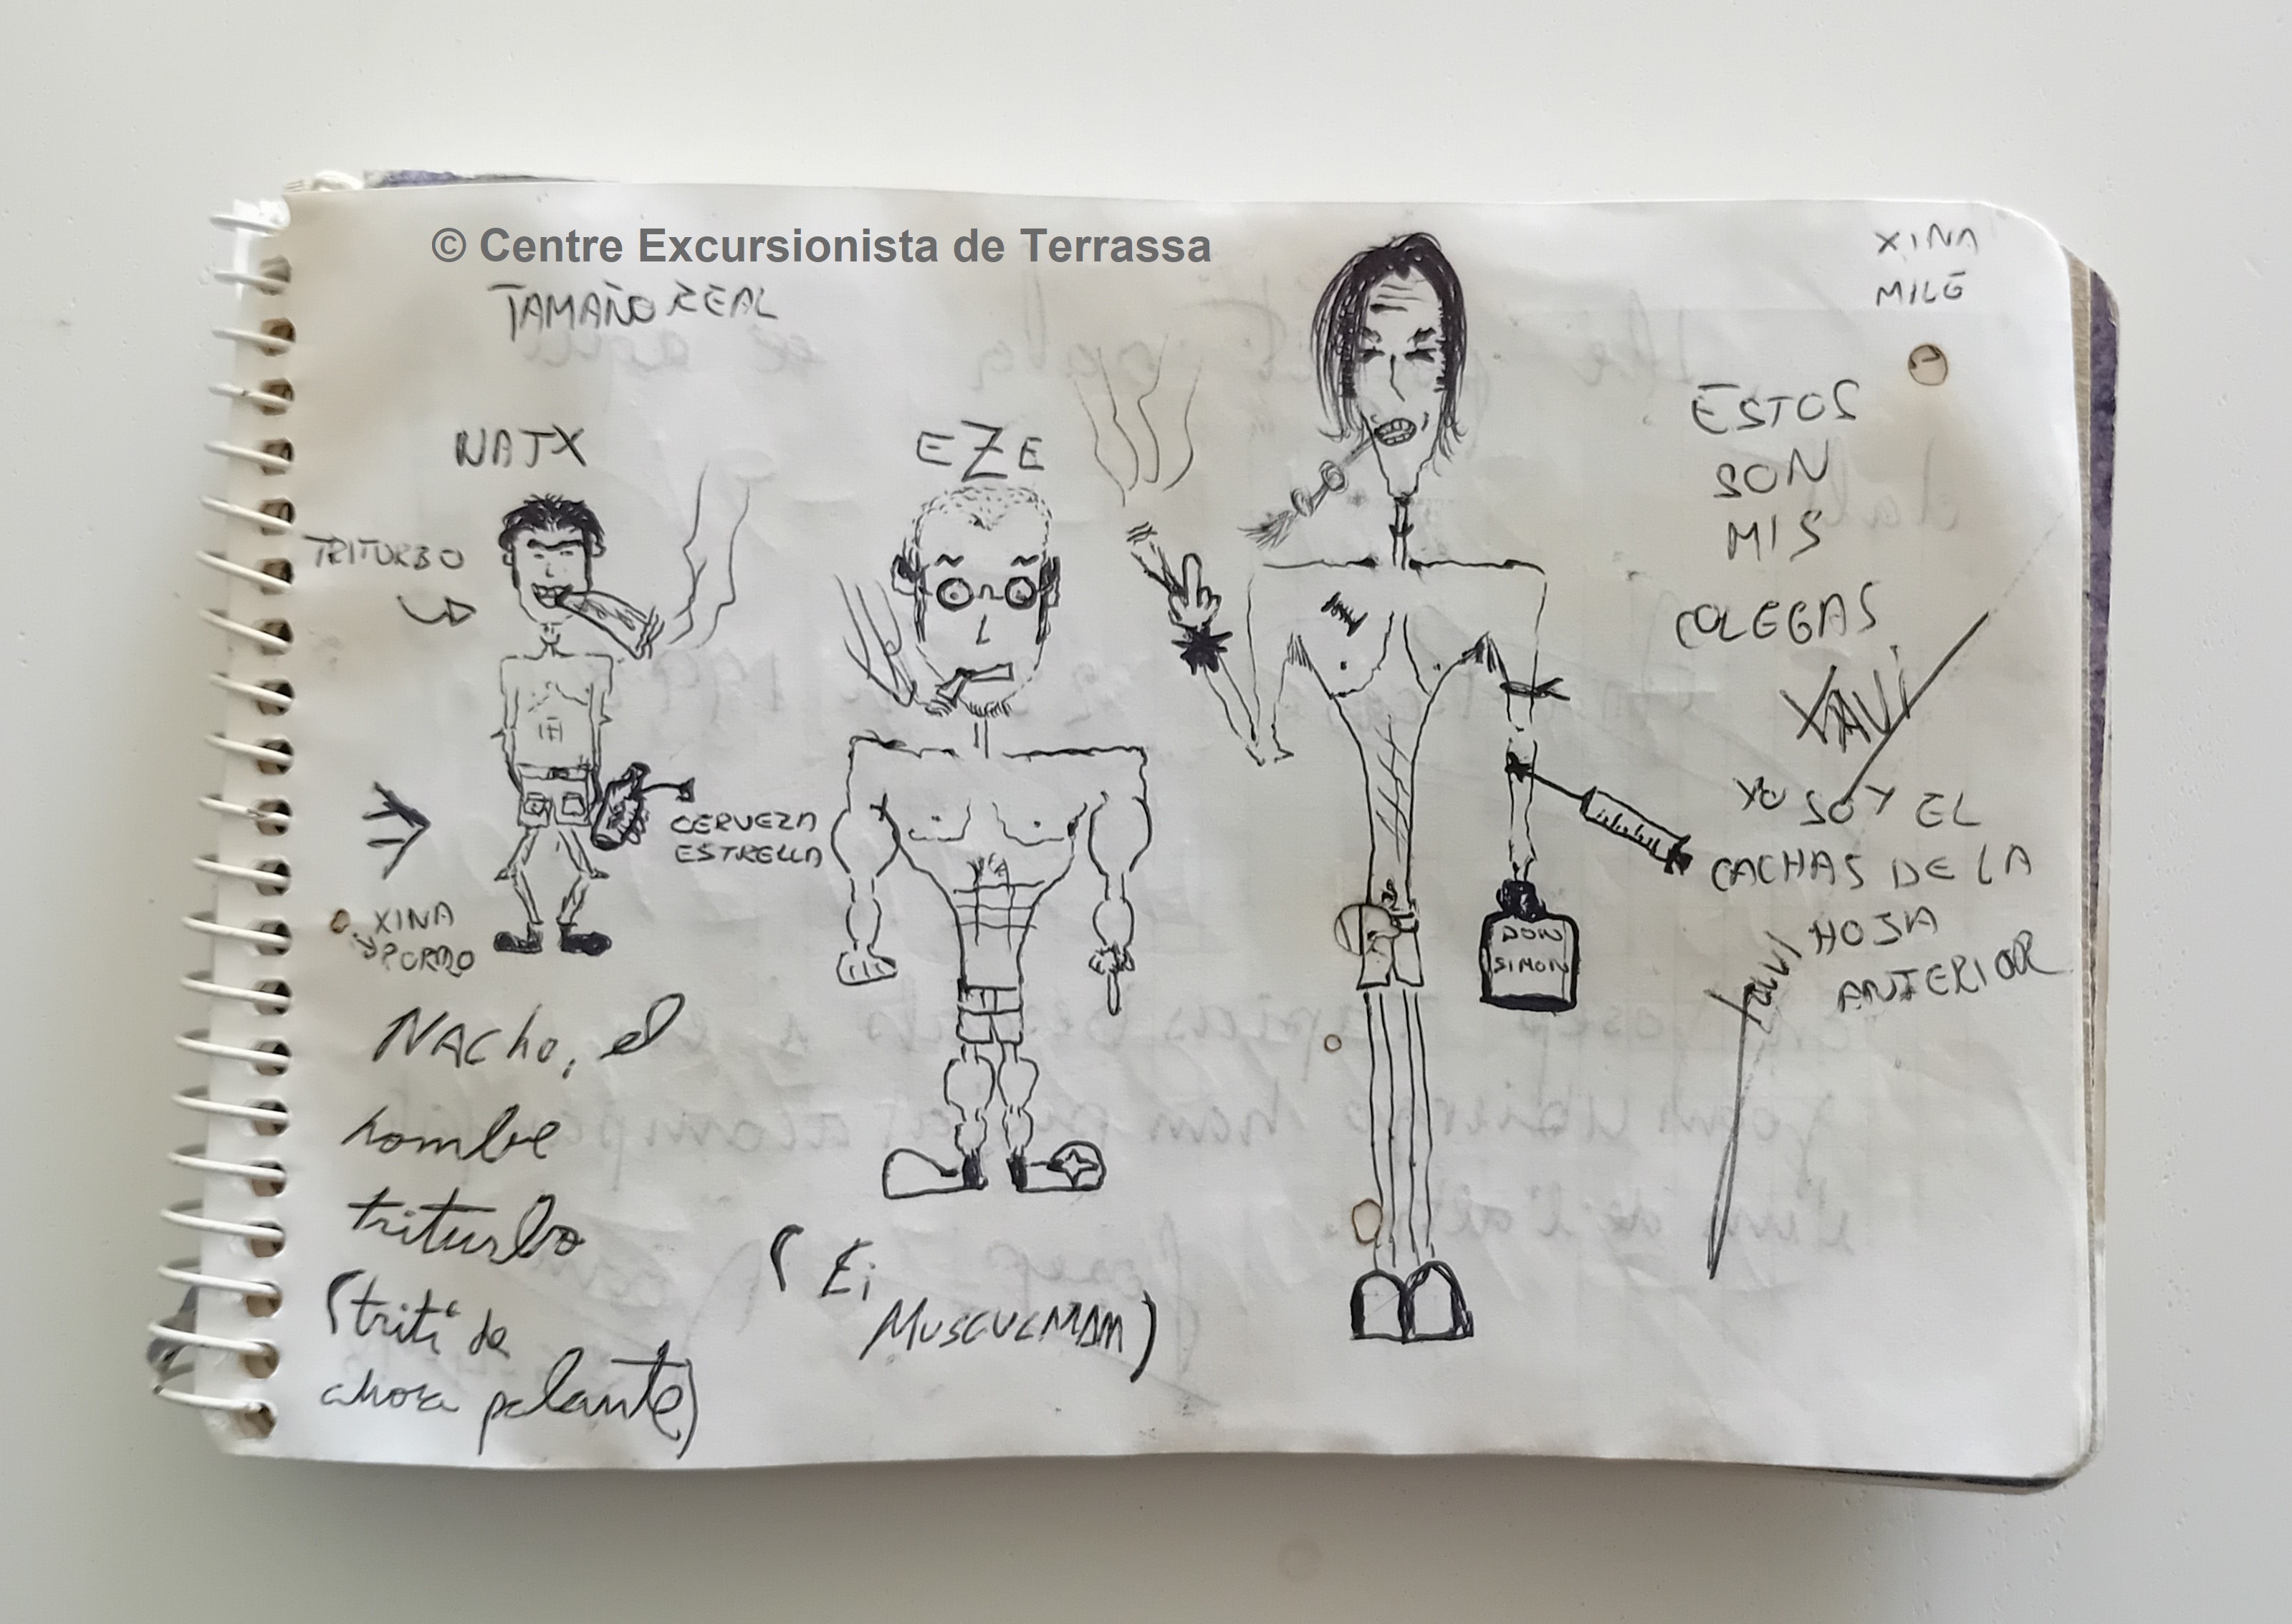 © Centre Excursionista de Terrassa
TAMAÑO REAL
XINA
NATX
EZE
TRITURBO
CERVEZA
ESTRELLA
XINA
PORRO
Nacho, el
hombre
triturbo
(triti de
ahora palante)
(Ei
MUSCULMAM)
DON
SIMON
ESTOS
SON
MIS
COLEGAS
XAVI
YO SOY EL
CACHAS DE LA
HOJA
ANTERIOR
Xavi